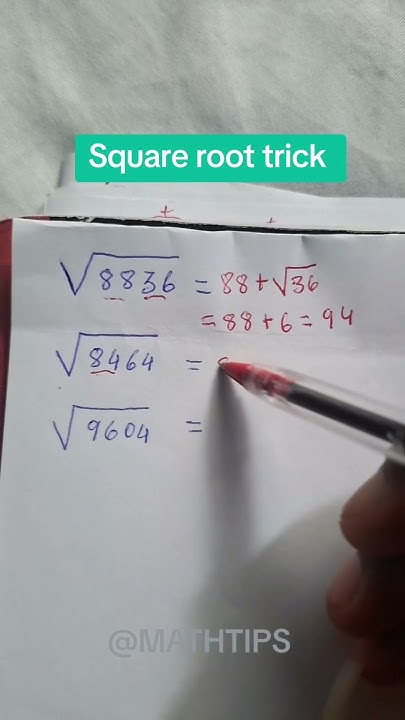 Square root trick
√8836 = 88+√36
= 88+6 = 94
√8464 =
√9604 =
@MATHTIPS